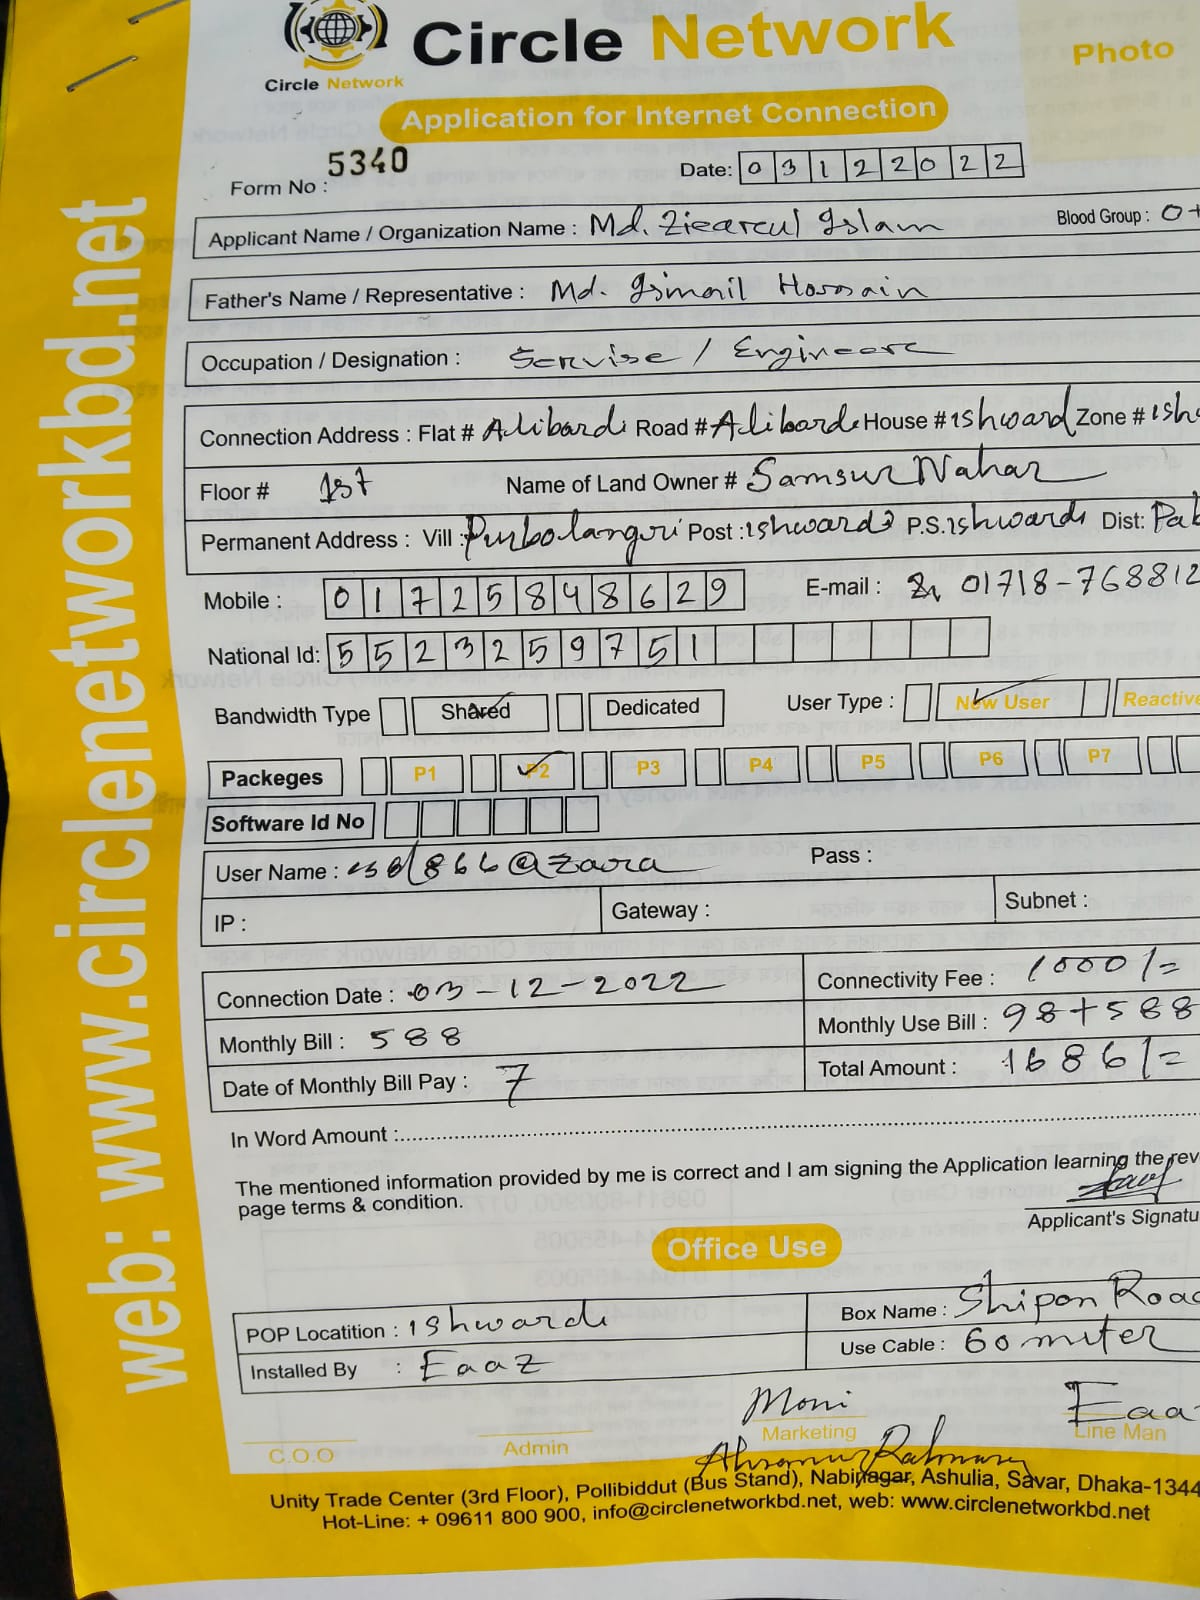 Circle Network
Circle Network
Photo
Application for Internet Connection
Form No : 5340
Date: 03122022
Applicant Name / Organization Name : Md. Ziearcul Islam Blood Group : O+
Father's Name / Representative : Md. Ismail Hossain
Occupation / Designation : Servise / Engineere
Connection Address : Flat # Alibardi Road # Alibardi House # ishward Zone # ish
Floor # 1st Name of Land Owner # Samsur Nahar
Permanent Address : Vill : Post : ishwardi P.S. ishwardi Dist: Pab
Mobile : 01725848629 E-mail : 01718-768812
National Id: 5523259751
Bandwidth Type Shared Dedicated User Type : New User Reactive
Packeges P1 P2 P3 P4 P5 P6 P7
Software Id No
User Name : @zara Pass :
IP : Gateway : Subnet :
Connection Date : 03-12-2022 Connectivity Fee : 1000/=
Monthly Bill : 588 Monthly Use Bill : 98+588
Date of Monthly Bill Pay : 7 Total Amount : 1686/=
In Word Amount :
The mentioned information provided by me is correct and I am signing the Application learning the rev
page terms & condition.
Applicant's Signatu
Office Use
POP Locatition : ishwardi Box Name : Shipon Road
Installed By : Eaaz Use Cable : 60 miter
Moni Eaa
C.O.O Admin Marketing Line Man
Rahman
Unity Trade Center (3rd Floor), Pollibiddut (Bus Stand), Nabinagar, Ashulia, Savar, Dhaka-1344
Hot-Line: + 09611 800 900, info@circlenetworkbd.net, web: www.circlenetworkbd.net
web: www.circlenetworkbd.net